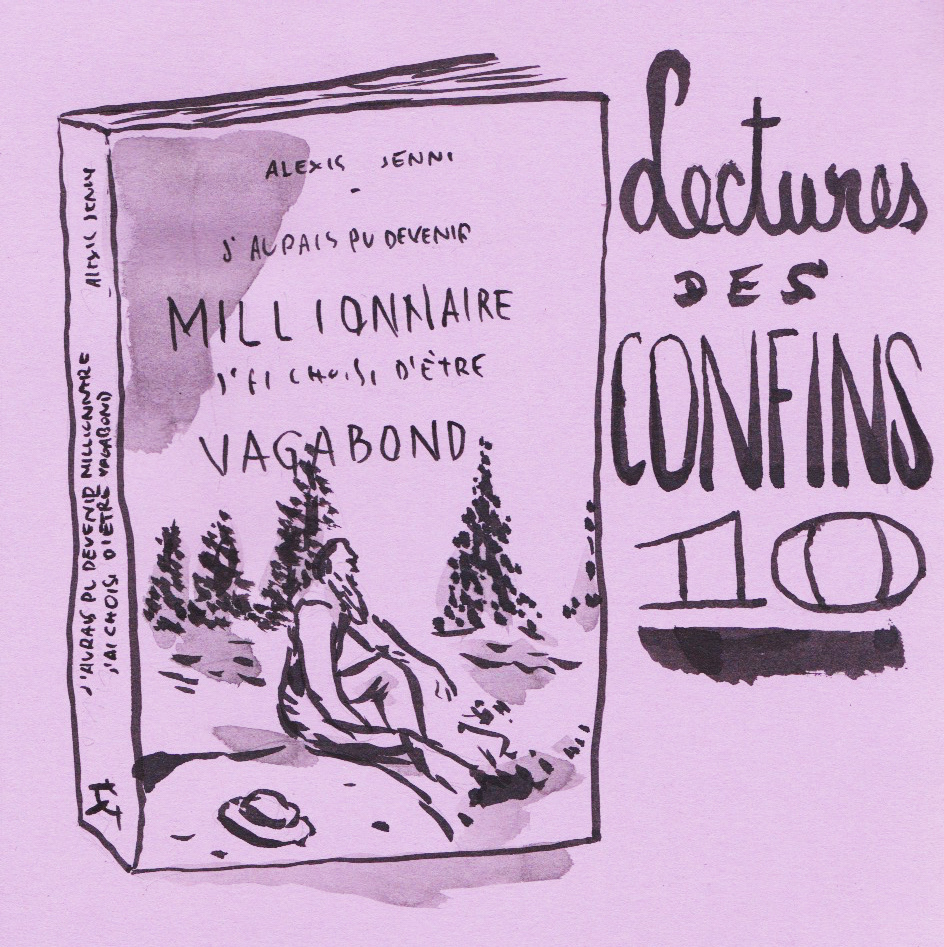 ALEXIS JENNI
-
J'AURAIS PU DEVENIR
MILLIONNAIRE
J'AI CHOISI D'ÊTRE
VAGABOND
ALEXIS JENNI
J'AURAIS PU DEVENIR MILLIONNAIRE
J'AI CHOISI D'ÊTRE VAGABOND
Lectures
DES
CONFINS
10